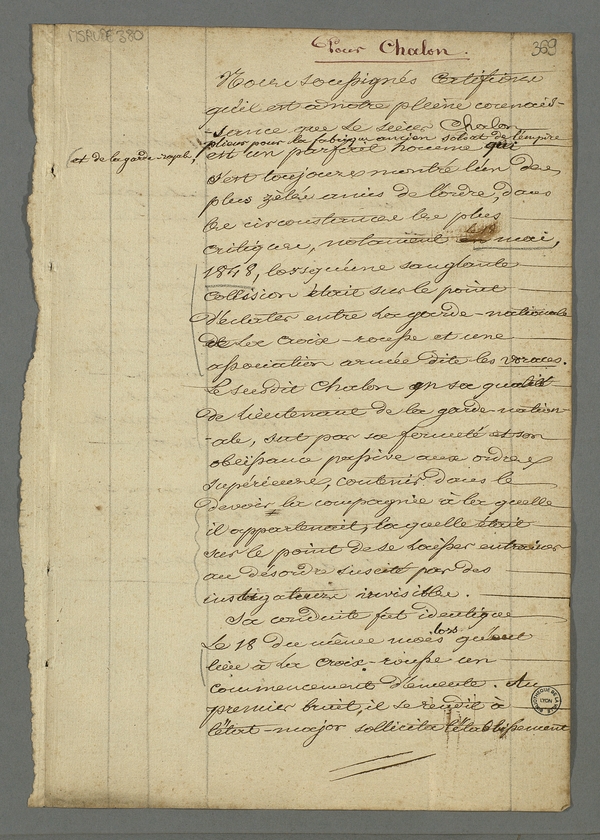 MS RUDE 380
369
Pour Chalon.
Nous soussignés certifions
qu'il est à notre pleine connais-
-sance que le sieur Chalon
plieur pour la fabrique ancien soldat de l'empire
(et de la garde-royale,
est un parfait homme qui
s'est toujours montré l'un des
plus zèlés amis de l'ordre, dans
les circonstances les plus
critiques, notament le 18 mai,
1848, lorsqu'une sanglante
collision était sur le point
d'éclater entre la garde-nationale
de La Croix-rousse et une
association armée dite les voraces.
Le susdit Chalon en sa qualité
de Lieutenant de la garde nation-
-ale, sut par sa fermeté et son
obeissance passive aux ordres
supérieurs, contenir dans le
devoir la compagnie à la quelle
il appartenait, laquelle était
sur le point de se laisser entrainer
au désordre suscité par des
instigateurs invisibles.
Sa conduite fut identique
Le 18 du même mois lors qu'eut
lieu à La Croix-rousse un
commencement d'émeute. Au
premier bruit, il se rendit à
l'état-major sollicita l'établissement
BIBLIOTHEQUE DE LA VILLE LYON